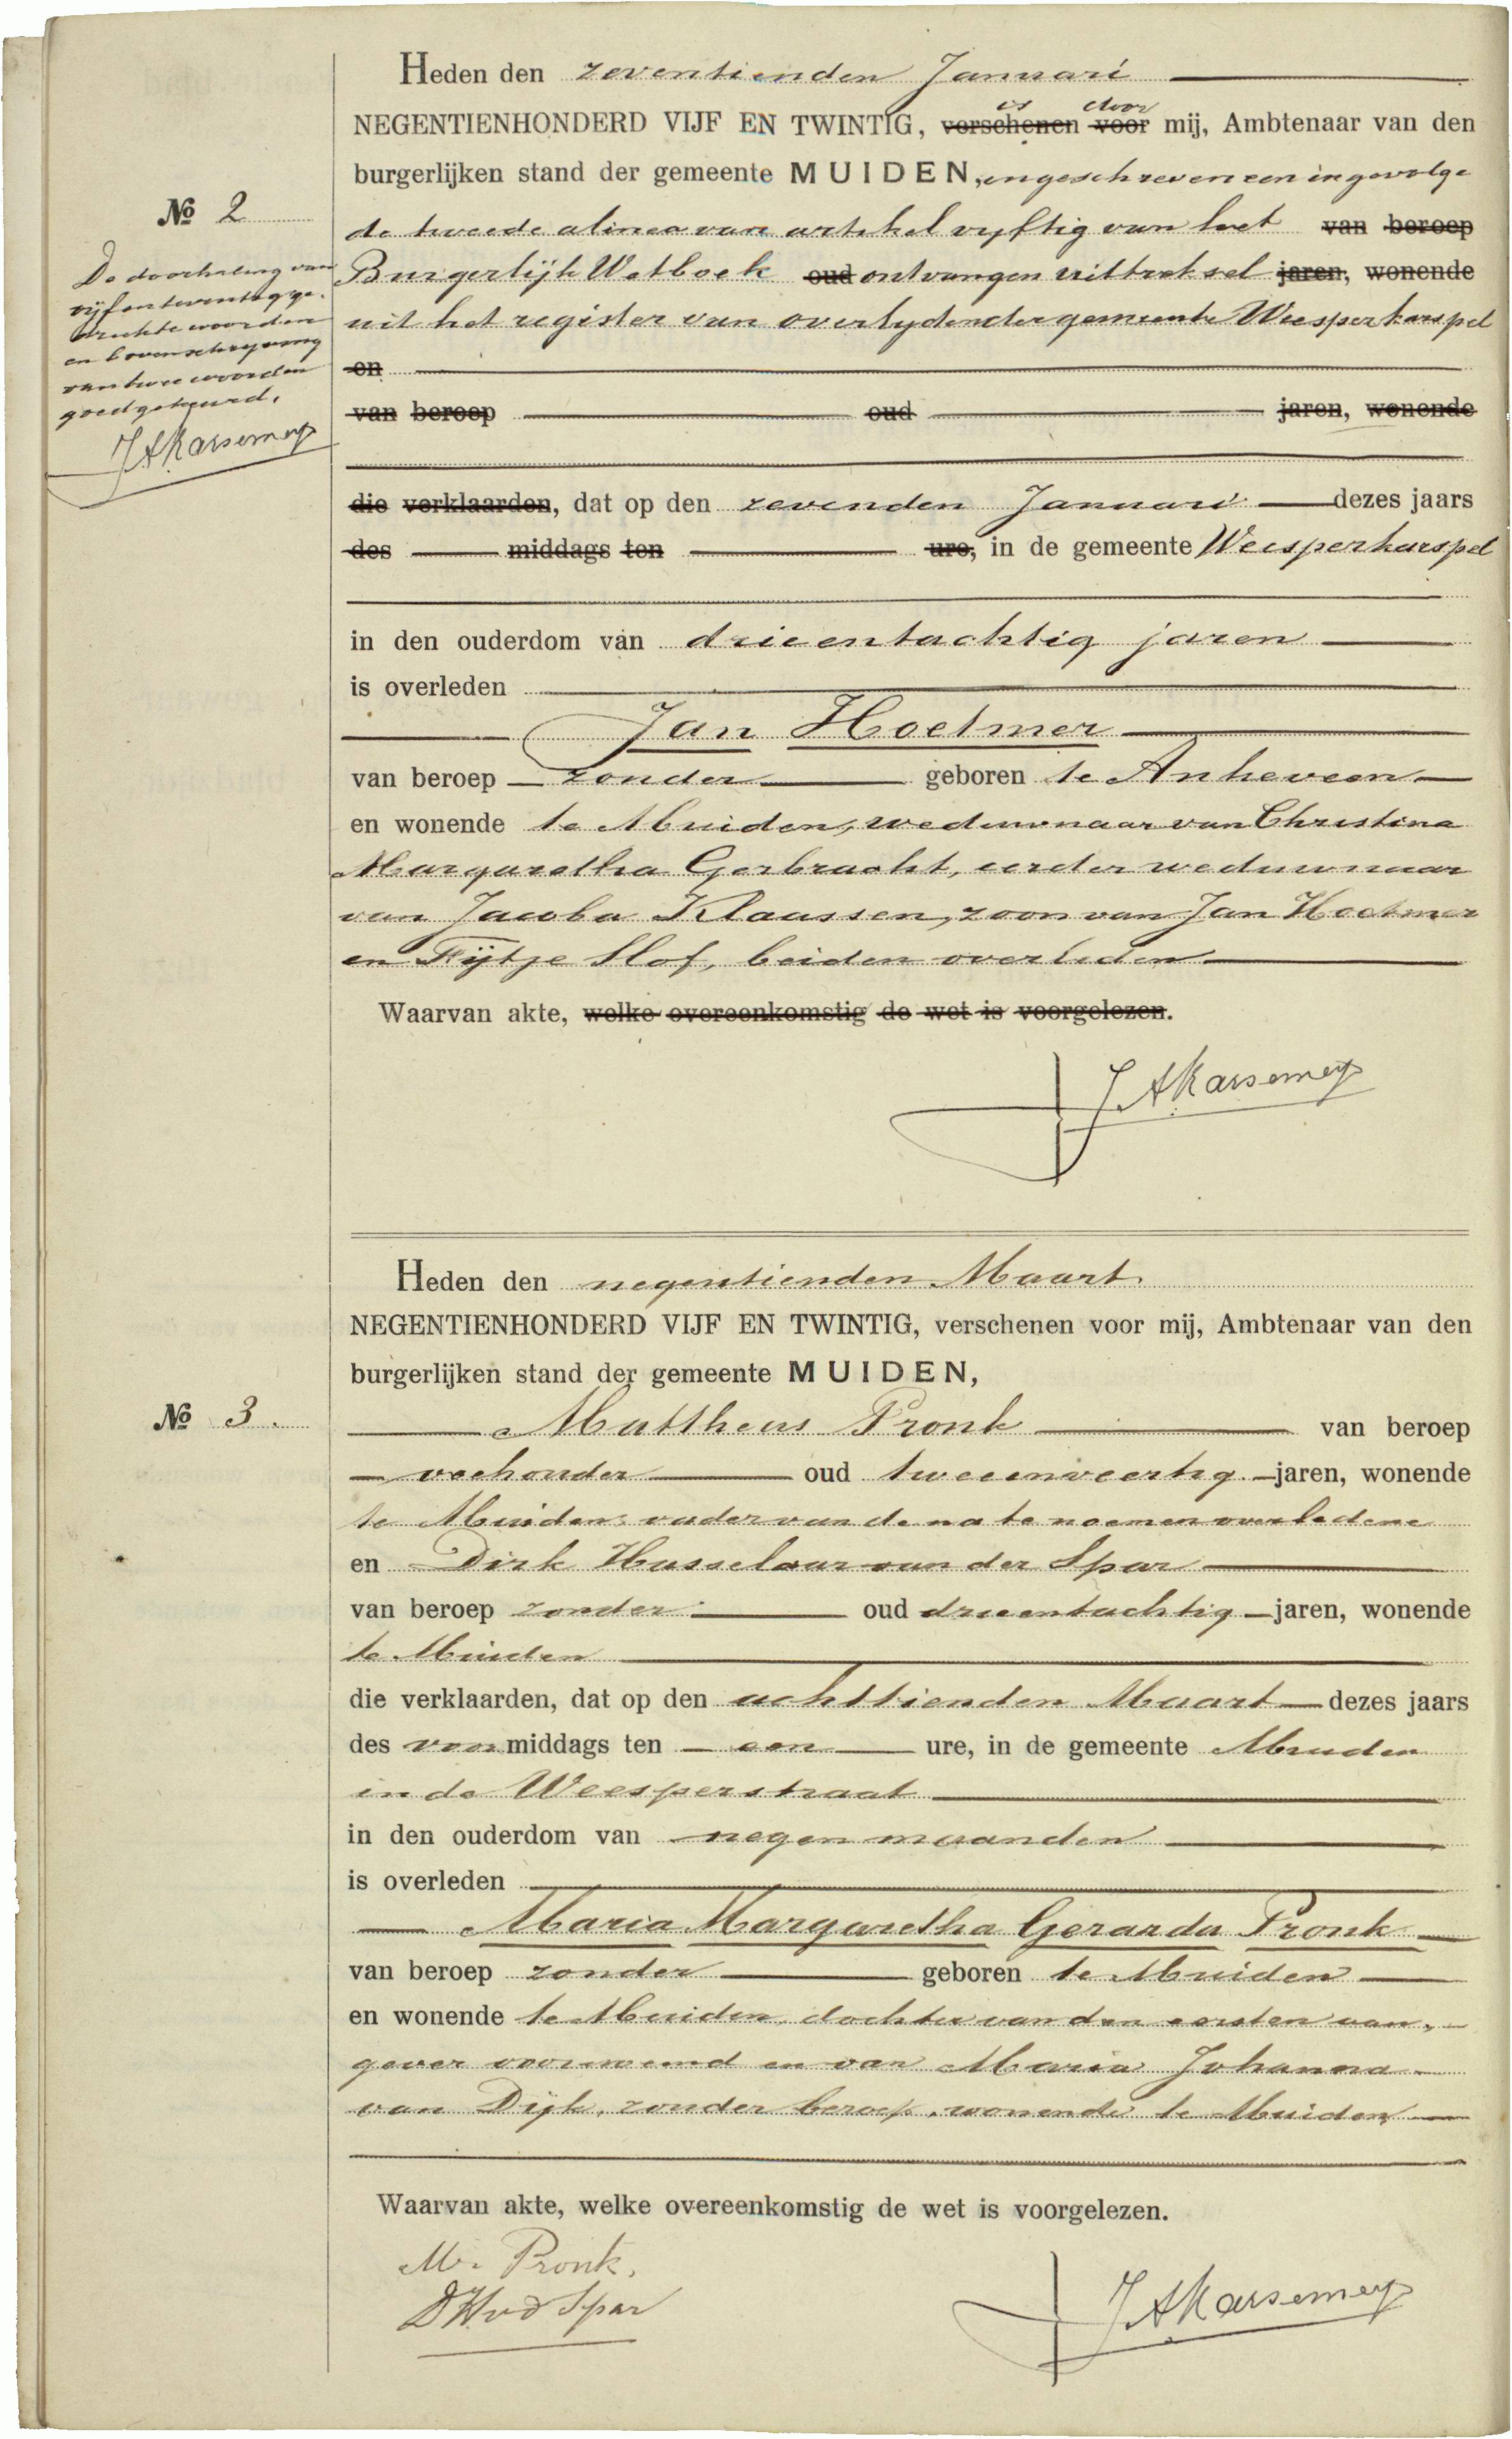 Heden den zeventienden Januari
is door
NEGENTIENHONDERD VIJF EN TWINTIG, verschenen voor mij, Ambtenaar van den
burgerlijken stand der gemeente MUIDEN, ingeschreven een ingevolge
de tweede alinea van artikel vyftig van het van beroep
Burgerlijk Wetboek oud ontvangen uittreksel jaren, wonende
uit het register van overlyden der gemeente Weesperkarspel
en
van beroep oud jaren, wonende
die verklaarden, dat op den zevenden Januari dezes jaars
des middags ten ure, in de gemeente Weesperkarspel
in den ouderdom van drieentachtig jaren
is overleden
Jan Hoetmer
van beroep zonder geboren te Ankeveen
en wonende te Muiden, weduwnaar van Christina
Margaretha Gerbracht, eerder weduwnaar
van Jacoba Klaassen, zoon van Jan Hoetmer
en Fijtje Slof, beiden overleden
Waarvan akte, welke overeenkomstig de wet is voorgelezen.
JAKarsemeyer
No 2
De doorhaling van
vijfentwintig ge-
drukte woorden
en bovenschryving
van twee woorden
goedgekeurd.
Heden den negentienden Maart
NEGENTIENHONDERD VIJF EN TWINTIG, verschenen voor mij, Ambtenaar van den
burgerlijken stand der gemeente MUIDEN,
No 3.
Mattheus Pronk van beroep
veehouder oud tweeenveertig jaren, wonende
te Muiden, vader van de na te noemen overledene
en Dirk Husselaar van der Spar
van beroep zonder oud drieentachtig jaren, wonende
te Muiden
die verklaarden, dat op den achttienden Maart dezes jaars
des voormiddags ten een ure, in de gemeente Muiden
in de Weesperstraat
in den ouderdom van negen maanden
is overleden
Maria Margaretha Gerarda Pronk
van beroep zonder geboren te Muiden
en wonende te Muiden, dochter van den eersten aan-
gever voornoemd en van Maria Johanna
van Dijk, zonder beroep, wonende te Muiden
Waarvan akte, welke overeenkomstig de wet is voorgelezen.
M. Pronk.
DHvd Spar